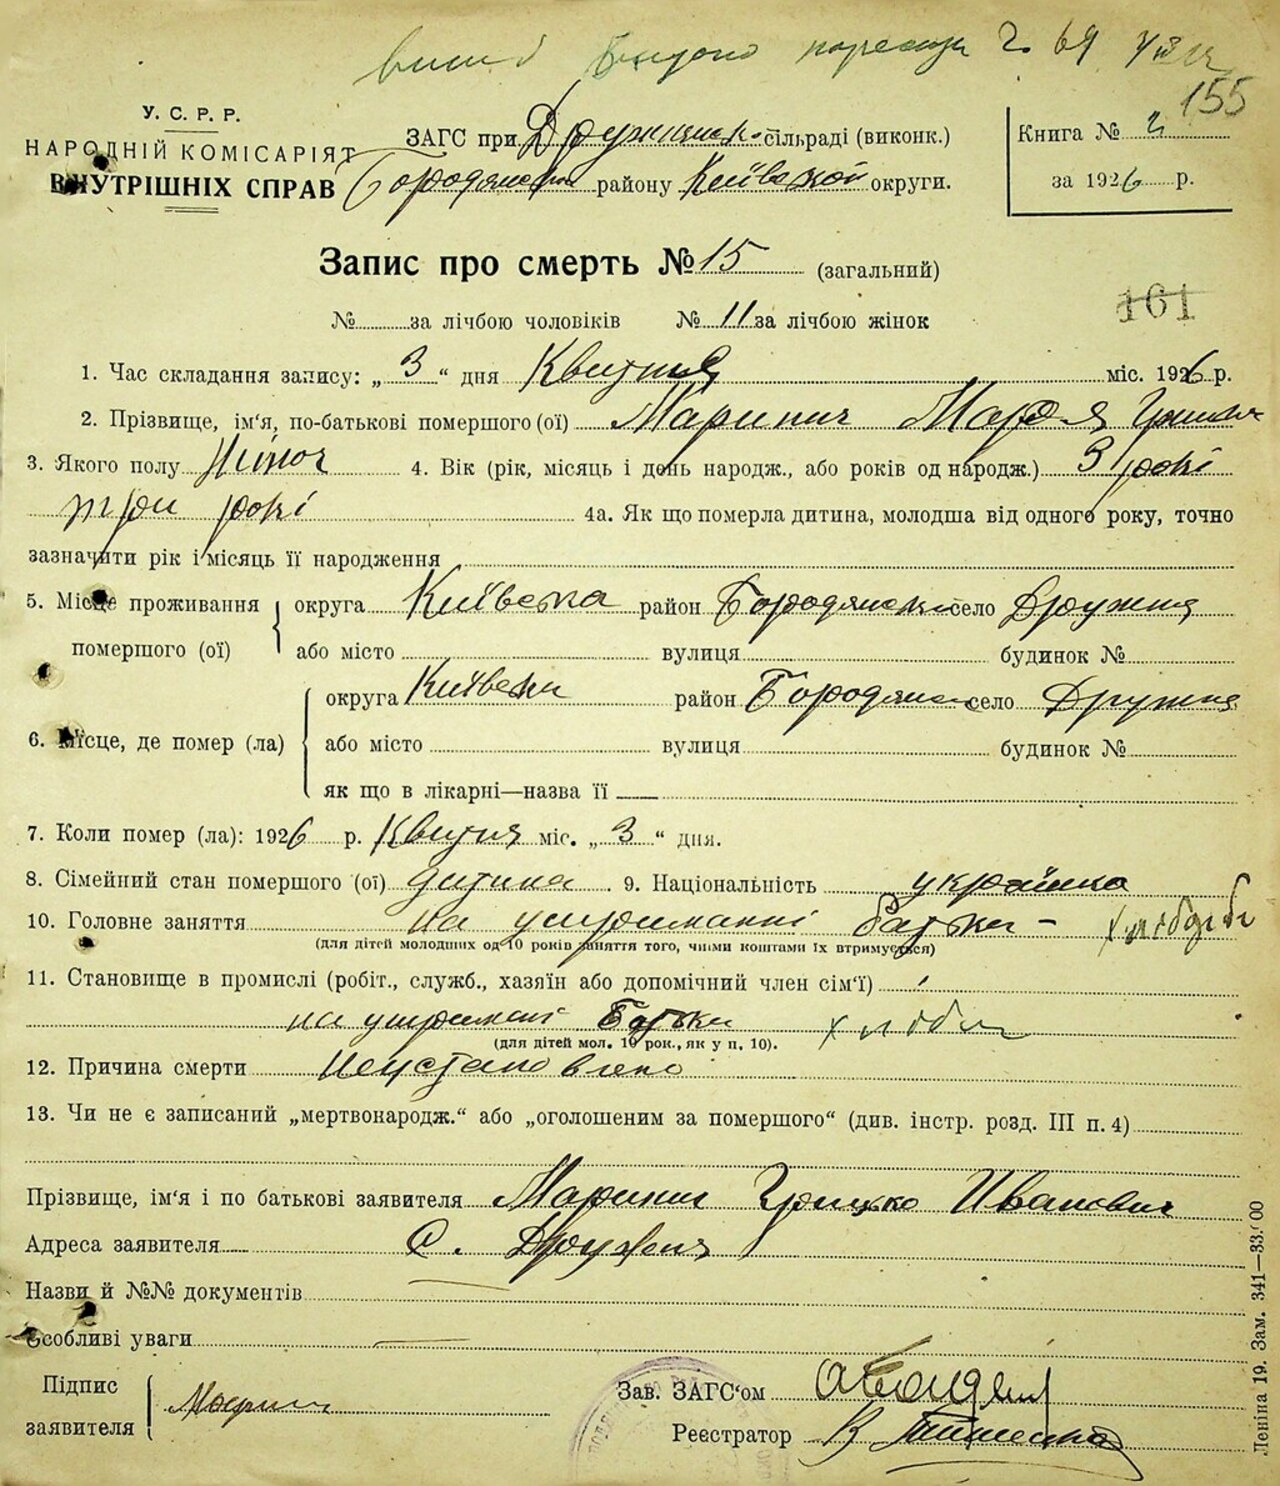 155
У. С. Р. Р.
НАРОДНІЙ КОМІСАРІЯТ
ВНУТРІШНІХ СПРАВ
ЗАГС при Дружнянск. сільраді (виконк.)
Бородянськ району Київской округи.
Книга № 2
за 1926 р.
Запис про смерть № 15 (загальний)
161
№ за лічбою чоловіків № 11 за лічбою жінок
1. Час складання запису: „3“ дня Квитня міс. 1926 р.
2. Прізвище, ім‘я, по-батькові помершого (ої) Маринич
3. Якого полу Жіноч 4. Вік (рік, місяць і день народж., або років од народж.) 3 рокі
три рокі 4а. Як що померла дитина, молодша від одного року, точно
зазначити рік і місяць її народження
5. Місце проживання помершого (ої) округа Київска район Бородянськ село Дружня
або місто вулиця будинок №
6. Місце, де помер (ла) округа Київска район Бородянск село Дружня
або місто вулиця будинок №
як що в лікарні—назва її
7. Коли помер (ла): 1926 р. Квитня міс. „3“ дня.
8. Сімейний стан помершого (ої) дитина 9. Національність українка
10. Головне заняття на утриманні батька - хлібороби
(для дітей молодших од 10 років заняття того, чиїми коштами їх втримується)
11. Становище в промислі (робіт., служб., хазяїн або допомічний член сім‘ї)
на утримані Батька
(для дітей мол. 10 рок., як у п. 10).
12. Причина смерти Неустановлено
13. Чи не є записаний „мертвонародж.“ або „оголошеним за помершого“ (див. інстр. розд. III п. 4)
Прізвище, ім‘я і по батькові заявителя Маринич Грицько Иванович
Адреса заявителя С. Дружня
Назви й №№ документів
Особливі уваги
Підпис заявителя Маринич
Зав. ЗАГС‘ом
Реєстратор
Леніна 19. Зам. 341—33.000